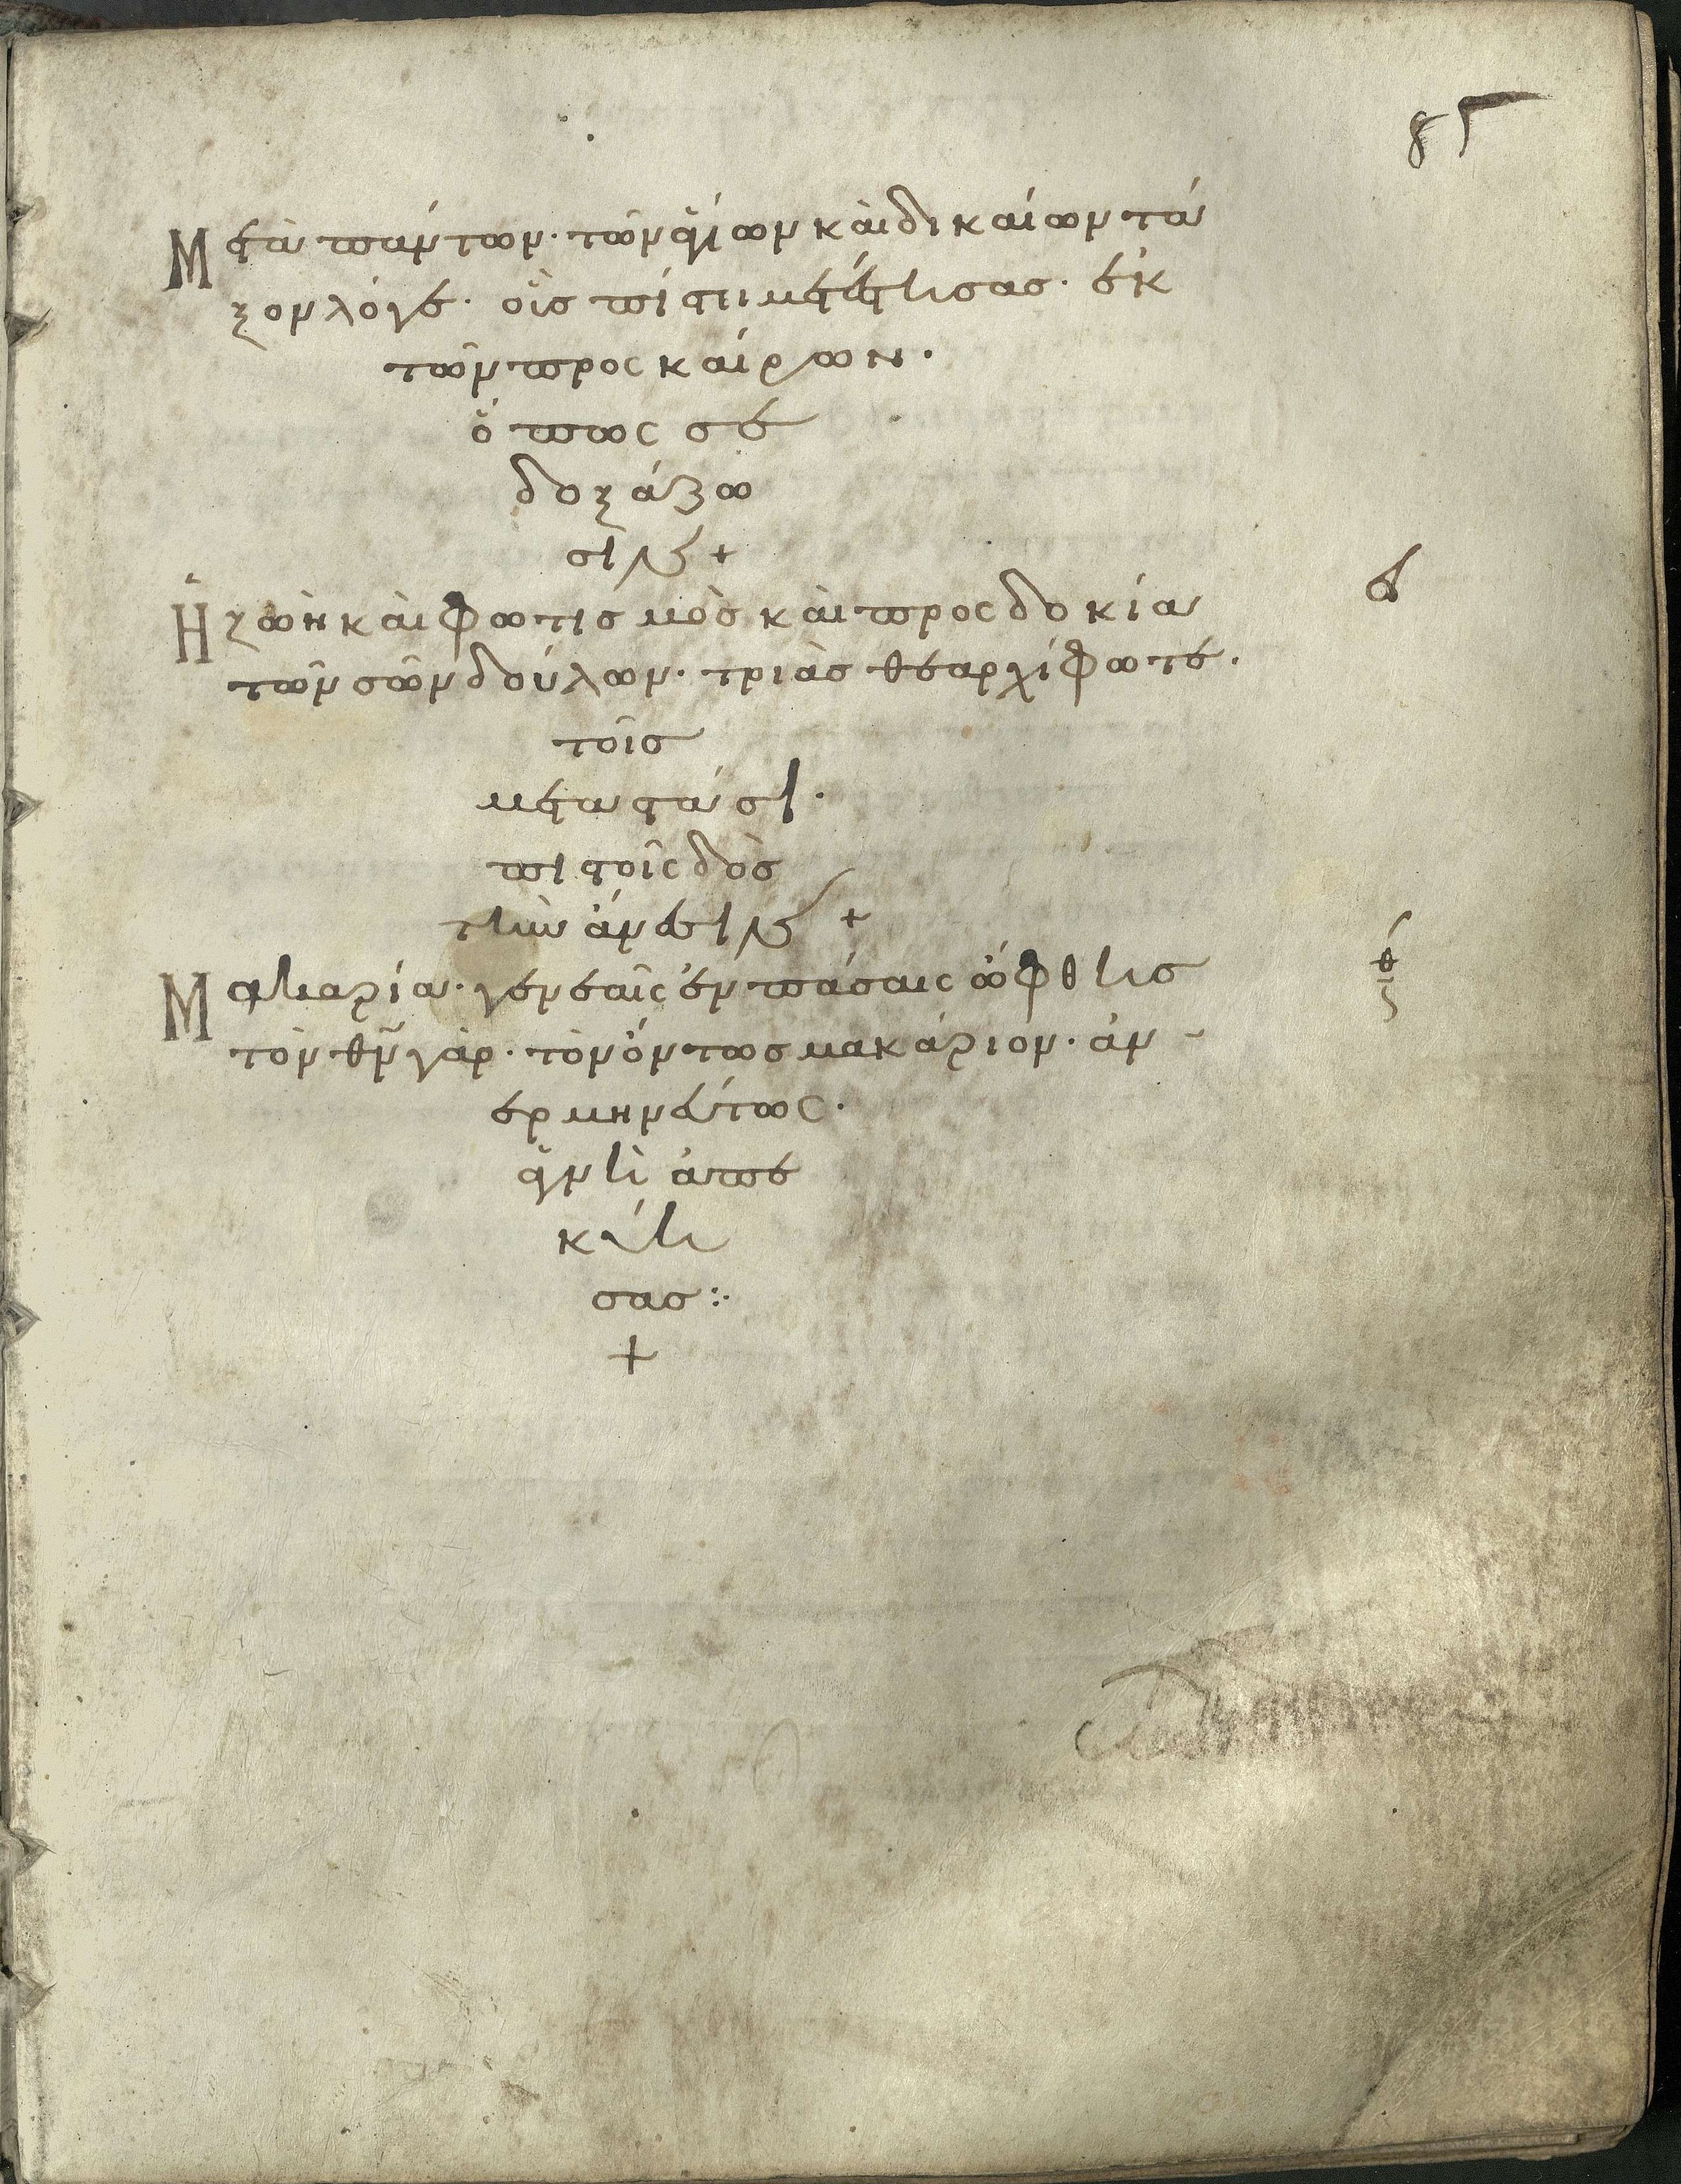 87
Μετὰ πάντων· τῶν ἁγίων καὶ δικαίων τά
ξον λόγε· οὓς πίστει μετέστησας· ἐκ
τῶν προσκαίρων·
ὅπως σὲ
δοξάζω
σιν +
Ἡ ζωὴ καὶ φωτισμὸς καὶ προσδοκία
τῶν σῶν δούλων· τριὰς θεαρχί φωτέ·
τοῖς
μεταστάσι·
πιστοῖς δὸς
τὴν ἄνεσιν +
Μῆτηρ γενεαῖς ἐν πάσαις ὤφθης
τὸν θν̅ γὰρ· τὸν ὄντως μακάριον· ἀν
ερμηνεύτως·
ἁγνὴ ἀπε
κύη
σας :·
+